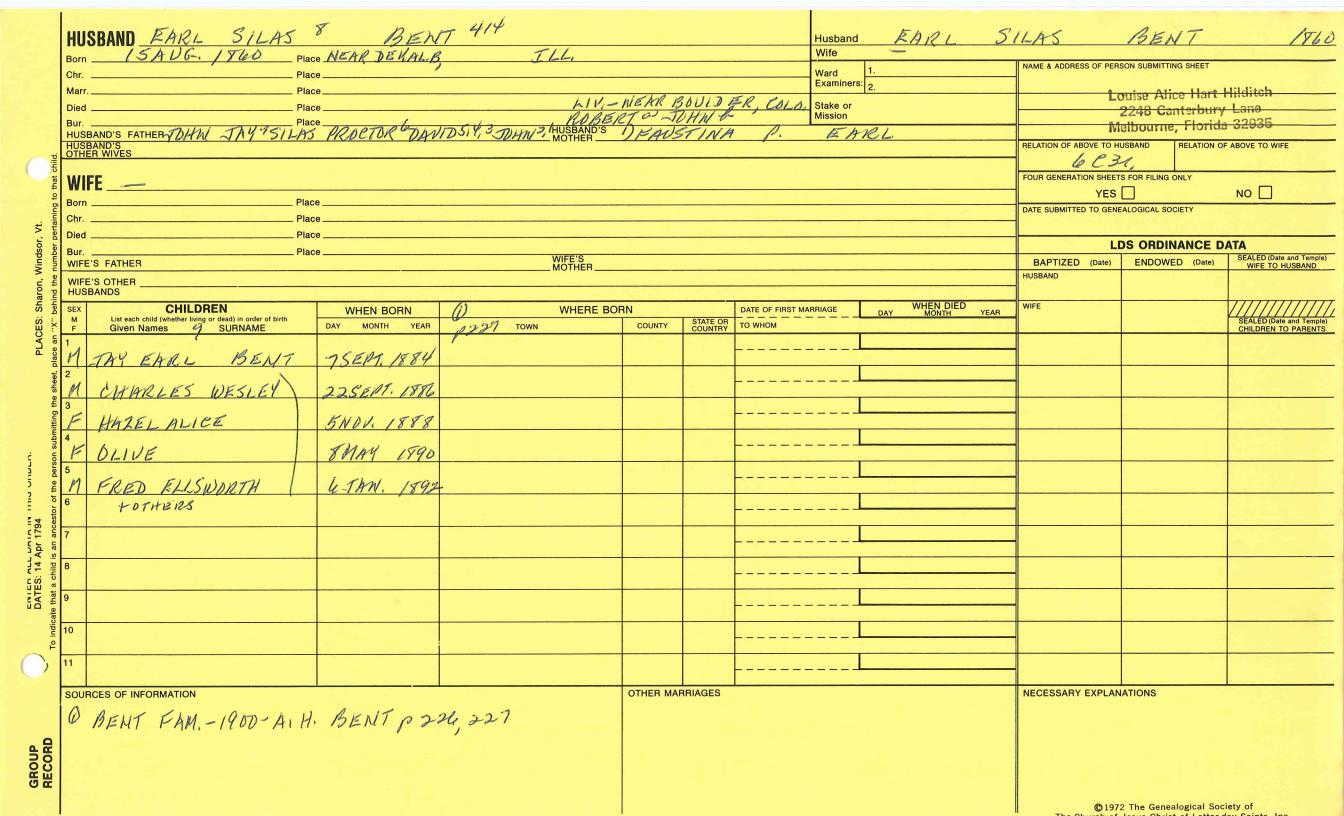 HUSBAND EARL SILAS 8 BENT 414
Born 1 5 AUG. 1860 Place NEAR DEKALB, ILL.
Chr. Place
Marr. Place
Died Place LIV.- NEAR BOULDER, COLO.
Bur. Place ROBERT JOHN
HUSBAND'S FATHER JOHN JAY 7 SILAS PROCTOR 6 DAVID 5,4,3 JOHN HUSBAND'S MOTHER 1) FAUSTINA P. EARL
HUSBAND'S OTHER WIVES
WIFE —
Born Place
Chr. Place
Died Place
Bur. Place
WIFE'S FATHER WIFE'S MOTHER
WIFE'S OTHER HUSBANDS
Husband EARL SILAS BENT 1860
Wife —
Ward Examiners: 1. 2.
Stake or Mission
NAME & ADDRESS OF PERSON SUBMITTING SHEET
Louise Alice Hart Hilditch
2248 Canterbury Lane
Melbourne, Florida 32935
RELATION OF ABOVE TO HUSBAND RELATION OF ABOVE TO WIFE
6 C3r,
FOUR GENERATION SHEETS FOR FILING ONLY
YES NO
DATE SUBMITTED TO GENEALOGICAL SOCIETY
LDS ORDINANCE DATA
BAPTIZED (Date) ENDOWED (Date) SEALED (Date and Temple) WIFE TO HUSBAND
HUSBAND
WIFE
SEALED (Date and Temple) CHILDREN TO PARENTS
SEX M F
CHILDREN
List each child (whether living or dead) in order of birth
Given Names 9 SURNAME
WHEN BORN
DAY MONTH YEAR
① p227
WHERE BORN
TOWN COUNTY STATE OR COUNTRY
DATE OF FIRST MARRIAGE
TO WHOM
WHEN DIED
DAY MONTH YEAR
1 M JAY EARL BENT 7 SEPT. 1884
2 M CHARLES WESLEY 22 SEPT. 1886
3 F HAZEL ALICE 5 NOV. 1888
4 F OLIVE 8 MAY 1890
5 M FRED ELLSWORTH 6 JAN. 1892
6 + OTHERS
7
8
9
10
11
SOURCES OF INFORMATION
① BENT FAM. - 1900 - A. H. BENT p 226, 227
OTHER MARRIAGES
NECESSARY EXPLANATIONS
©1972 The Genealogical Society of
The Church of Jesus Christ of Latter-day Saints, Inc.
PLACES: Sharon, Windsor, Vt.
To indicate that a child is an ancestor of the person submitting the sheet, place an "X" behind the number pertaining to that child.
ENTER ALL DATA IN THIS ORDER:
DATES: 14 Apr 1794
GROUP RECORD